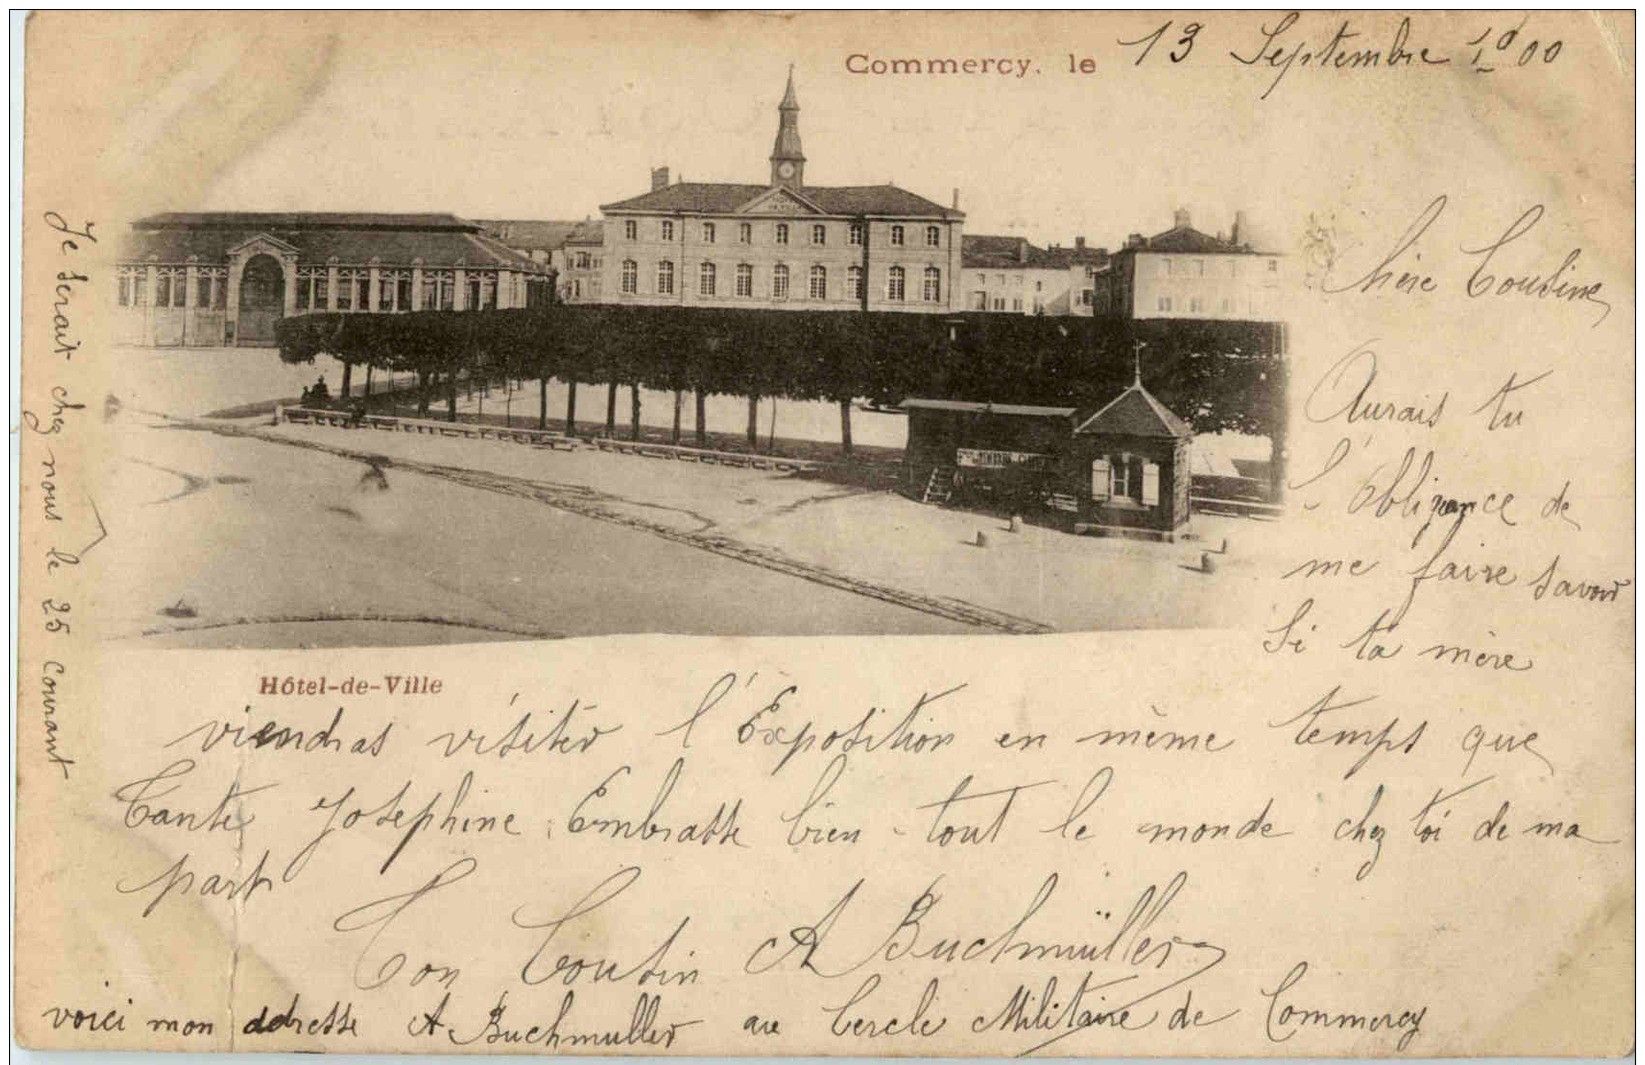 Commercy, le 13 Septembre 1900
Chère Cousine
Aurais tu
l'Obligeance de
me faire savoir
Si ta mère
Hôtel-de-Ville
viendras visiter l'Exposition en même temps que
Tante Josephine. Embrasse bien tout le monde chez toi de ma
part
Ton Cousin A Buchmüller
voici mon adresse A. Buchmuller au Cercle Militaire de Commercy
Je serait chez nous le 25 courant